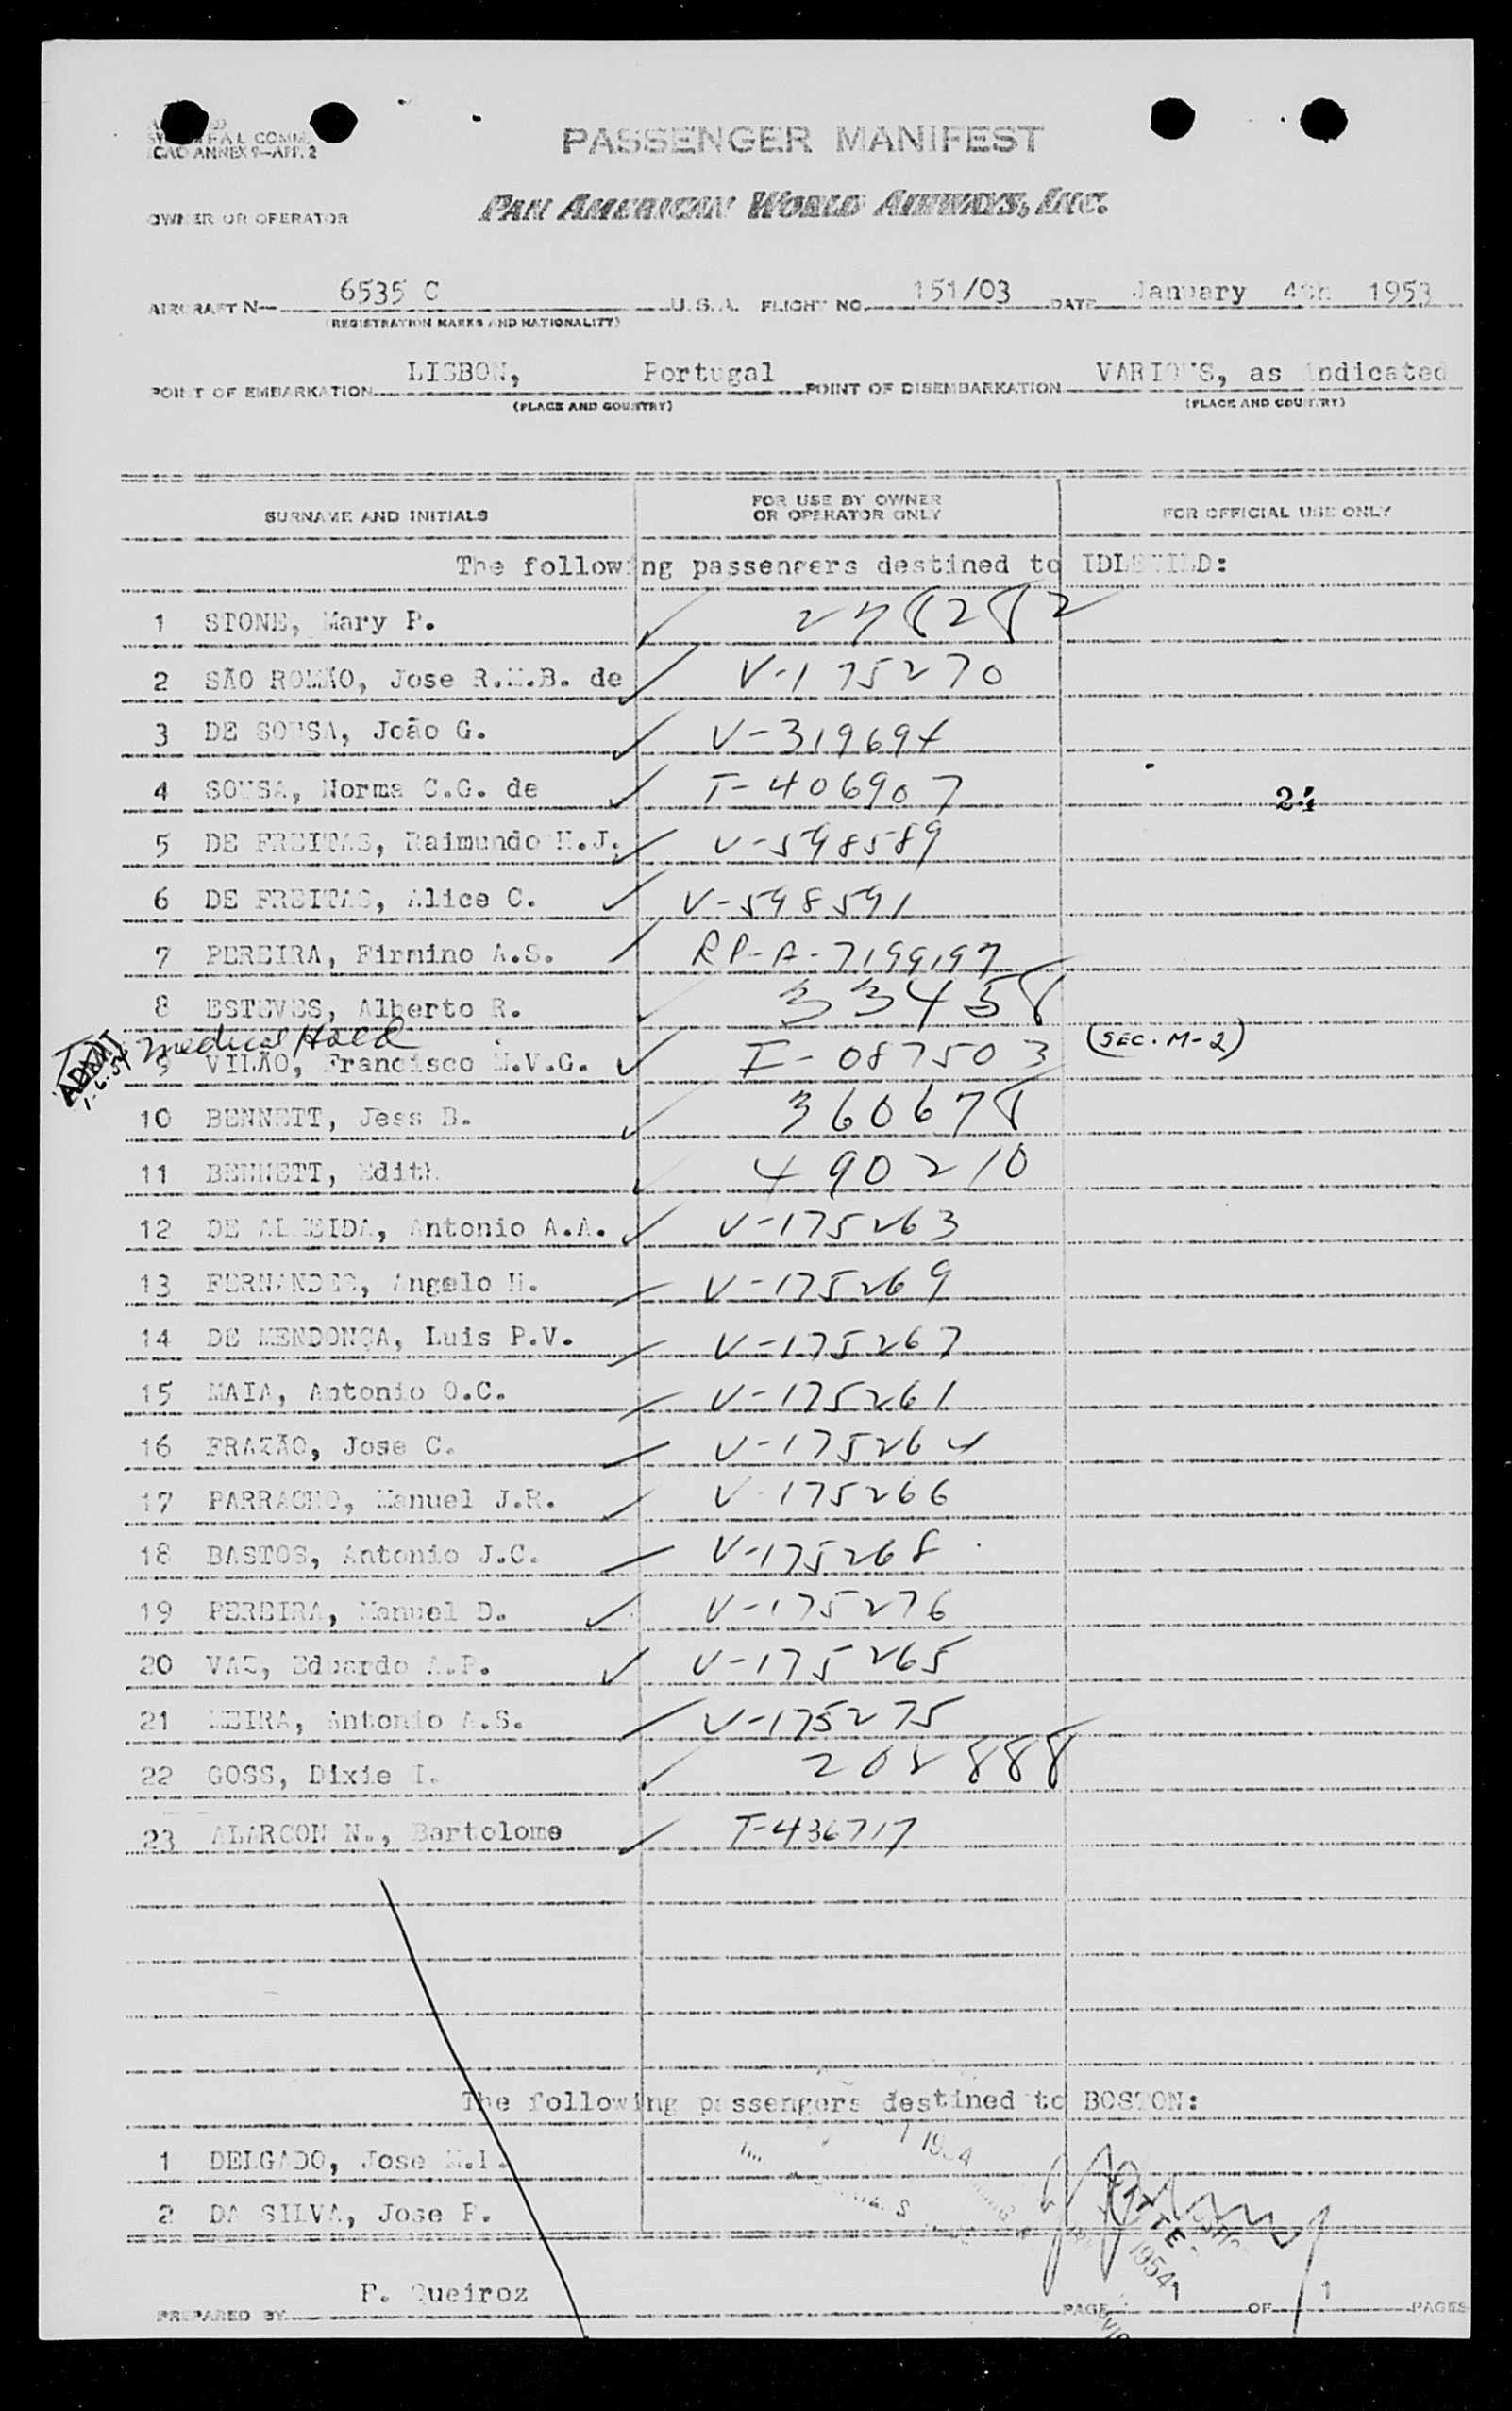 ICAO ANNEX 9—APP. 2
PASSENGER MANIFEST
OWNER OR OPERATOR
PAN AMERICAN WORLD AIRWAYS, INC.
AIRCRAFT N— 6535 C U.S.A. FLIGHT NO. 151/03 DATE January 4th 1953
(REGISTRATION MARKS AND NATIONALITY)
POINT OF EMBARKATION LISBON, Portugal POINT OF DISEMBARKATION VARIOUS, as indicated
(PLACE AND COUNTRY) (PLACE AND COUNTRY)
SURNAME AND INITIALS FOR USE BY OWNER OR OPERATOR ONLY FOR OFFICIAL USE ONLY
The following passengers destined to IDLEWILD:
1 STONE, Mary P. 278282
2 SÃO ROMÃO, Jose R.M.B. de V-175270
3 DE SOUSA, João G. V-319694
4 SOUSA, Norma C.G. de T-406907
5 DE FREITAS, Raimundo H.J. V-598589
6 DE FREITAS, Alice C. V-598591
7 PEREIRA, Firmino A.S. RP-A-7199197
8 ESTEVES, Alberto R. 33458
ADMT 1-6-54 Medical Hold
9 VILÃO, Francisco M.V.G. I-087503 (SEC. M-2)
10 BENNETT, Jess B. 360678
11 BENNETT, Edith 490210
12 DE ALMEIDA, Antonio A.A. V-175263
13 FERNANDES, Angelo H. V-175269
14 DE MENDONÇA, Luis P.V. V-175267
15 MAIA, Antonio O.C. V-175261
16 FRAZÃO, Jose C. V-175264
17 PARRACHO, Manuel J.R. V-175266
18 BASTOS, Antonio J.C. V-175268
19 PEREIRA, Manuel D. V-175276
20 VAZ, Eduardo A.P. V-175265
21 MEIRA, Antonio A.S. V-175275
22 GOSS, Dixie I. 202888
23 ALARCON N., Bartolome T-436717
The following passengers destined to BOSTON:
1 DELGADO, Jose M.I.
2 DA SILVA, Jose P.
1954
PREPARED BY P. Queiroz PAGE 1 OF 1 PAGES